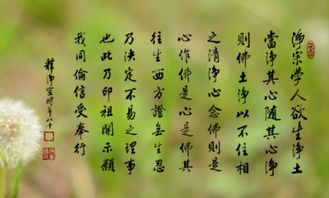 淨宗學人欲生淨土
當淨其心隨其心淨
則佛土淨以不住相
之清淨心念佛則是
心作佛是心是佛其
往生西方證無生忍
乃決定不易之理事
也此乃即祖開示願
我同倫信受奉行